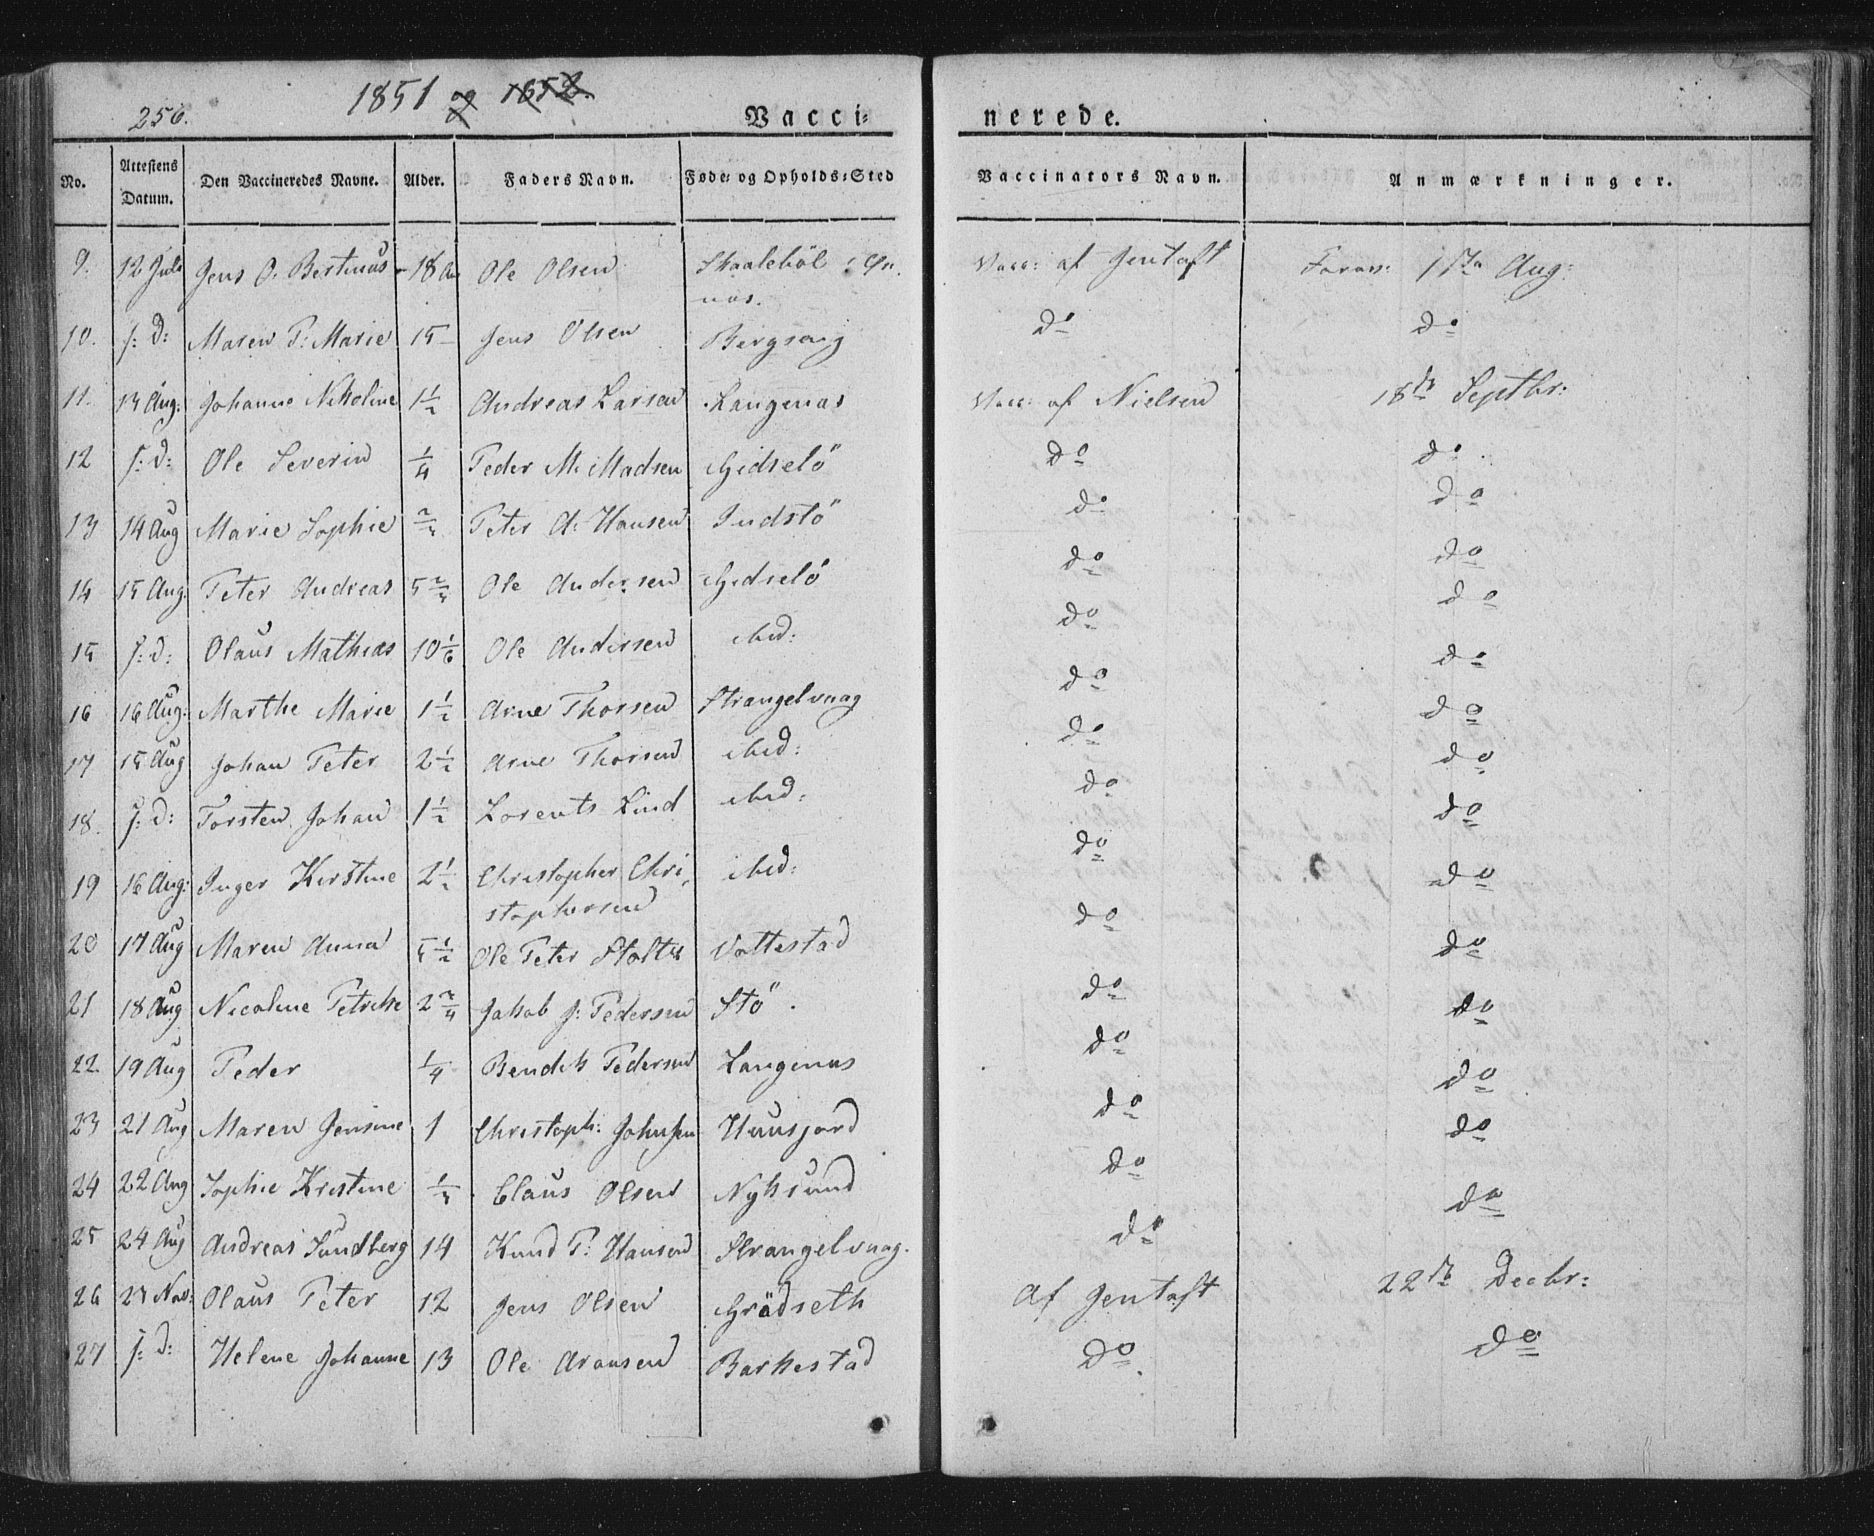 256.
1851 og 1852.
Vacci-
nerede.
No.
Attestens Datum.
Den Vaccineredes Navne.
Alder.
Faders Navn.
Føde- og Opholds-Sted
Vaccinators Navn.
Anmærkninger.
9. 12 Juli Jens O. Bertinus 18 Ole Olsen Skaalebøl
Vacc: af Gentoft Aug:
10. s: d: Maren P: Marie 15 Jens Olsen Bergseng do do
11. 13 Aug: Johanne Nikoline 1½ Andreas Larsen Langenæs Vacc: af Nielsen 18de Septbr:
12 s: d: Ole Severin ¼ Peder M. Madsen Gidselö do do
13 14 Aug Marie Sophie Peter A: Hansen Indstö do do
14 15 Aug: Peter Andreas Ole Andersen Gidselö do do
15 s: d: Olaus Mathias 10 1/6 Ole Andersen ibid: do do
16 16 Aug: Marthe Marie 1½ Arne Thorsen Strangelvaag do do
17 15 Aug Johan Peter 2½ Arne Thorsen ibid: do do
18. s: d: Torsten Johan 1½ Lorents Lind ibid: do do
19 16 Aug: Inger Kirstine 2½ Christopher Chri-
stophersen ibid: do do
20 17 Aug Maren Anna 5½ Ole Peter Vottestad do do
21 18 Aug Nicoline Petrikke 2¾ Jakob J: Pedersen Stö. do do
22 19 Aug Peder ¼ Bendik Pedersen Langenæs do do
23 21 Aug Maren Jensine 1 Christoph: Johnsen Huusjord do do
24 22 Aug Sophie Kristine Claus Olsen Nyksund do do
25 24 Aug Andreas Sundberg 14 Knud P: Hansen Strangelvaag. do
26 23 Nov: Olaus Peter 12 Jens Olsen Grådseth Af Gentoft 22de Decbr:
27 s: d: Helene Johanne 13 Ole Aronsen Barkestad do. do